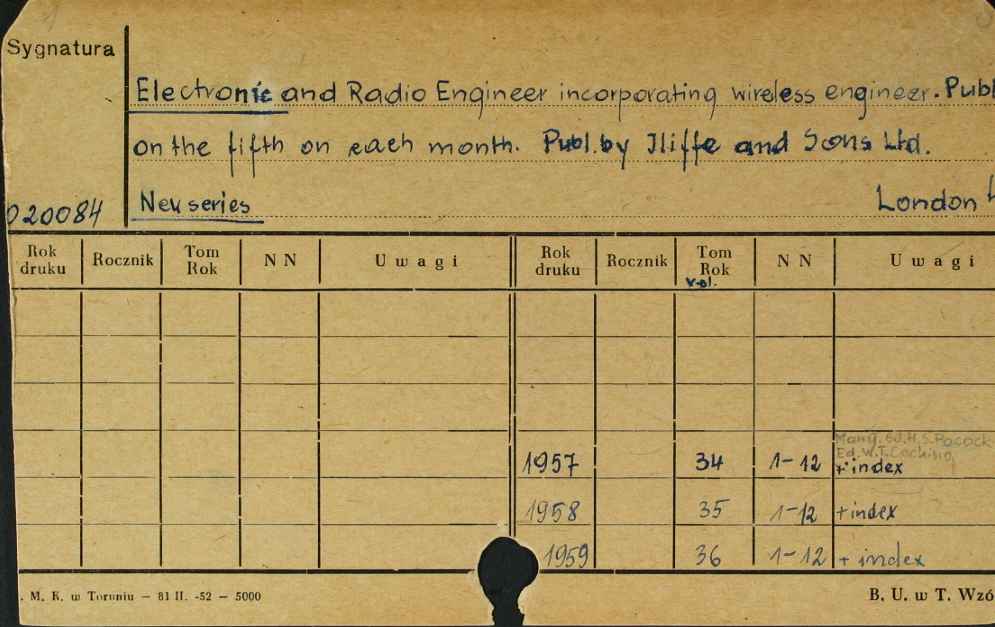 Sygnatura
Electronic and Radio Engineer incorporating wireless engineer. Publ
on the fifth on each month. Publ. by Iliffe and Sons Ltd.
020084 New series London
Rok druku Rocznik Tom Rok N N Uwagi Rok druku Rocznik Tom Rok vol. N N Uwagi
Manag. Ed. H. S. Pocock
Ed. W. T.
1957 34 1-12 + index
1958 35 1-12 + index
1959 36 1-12 + index
. M. K. w Toruniu — 81 II. -52 — 5000 B. U. w T. Wzó